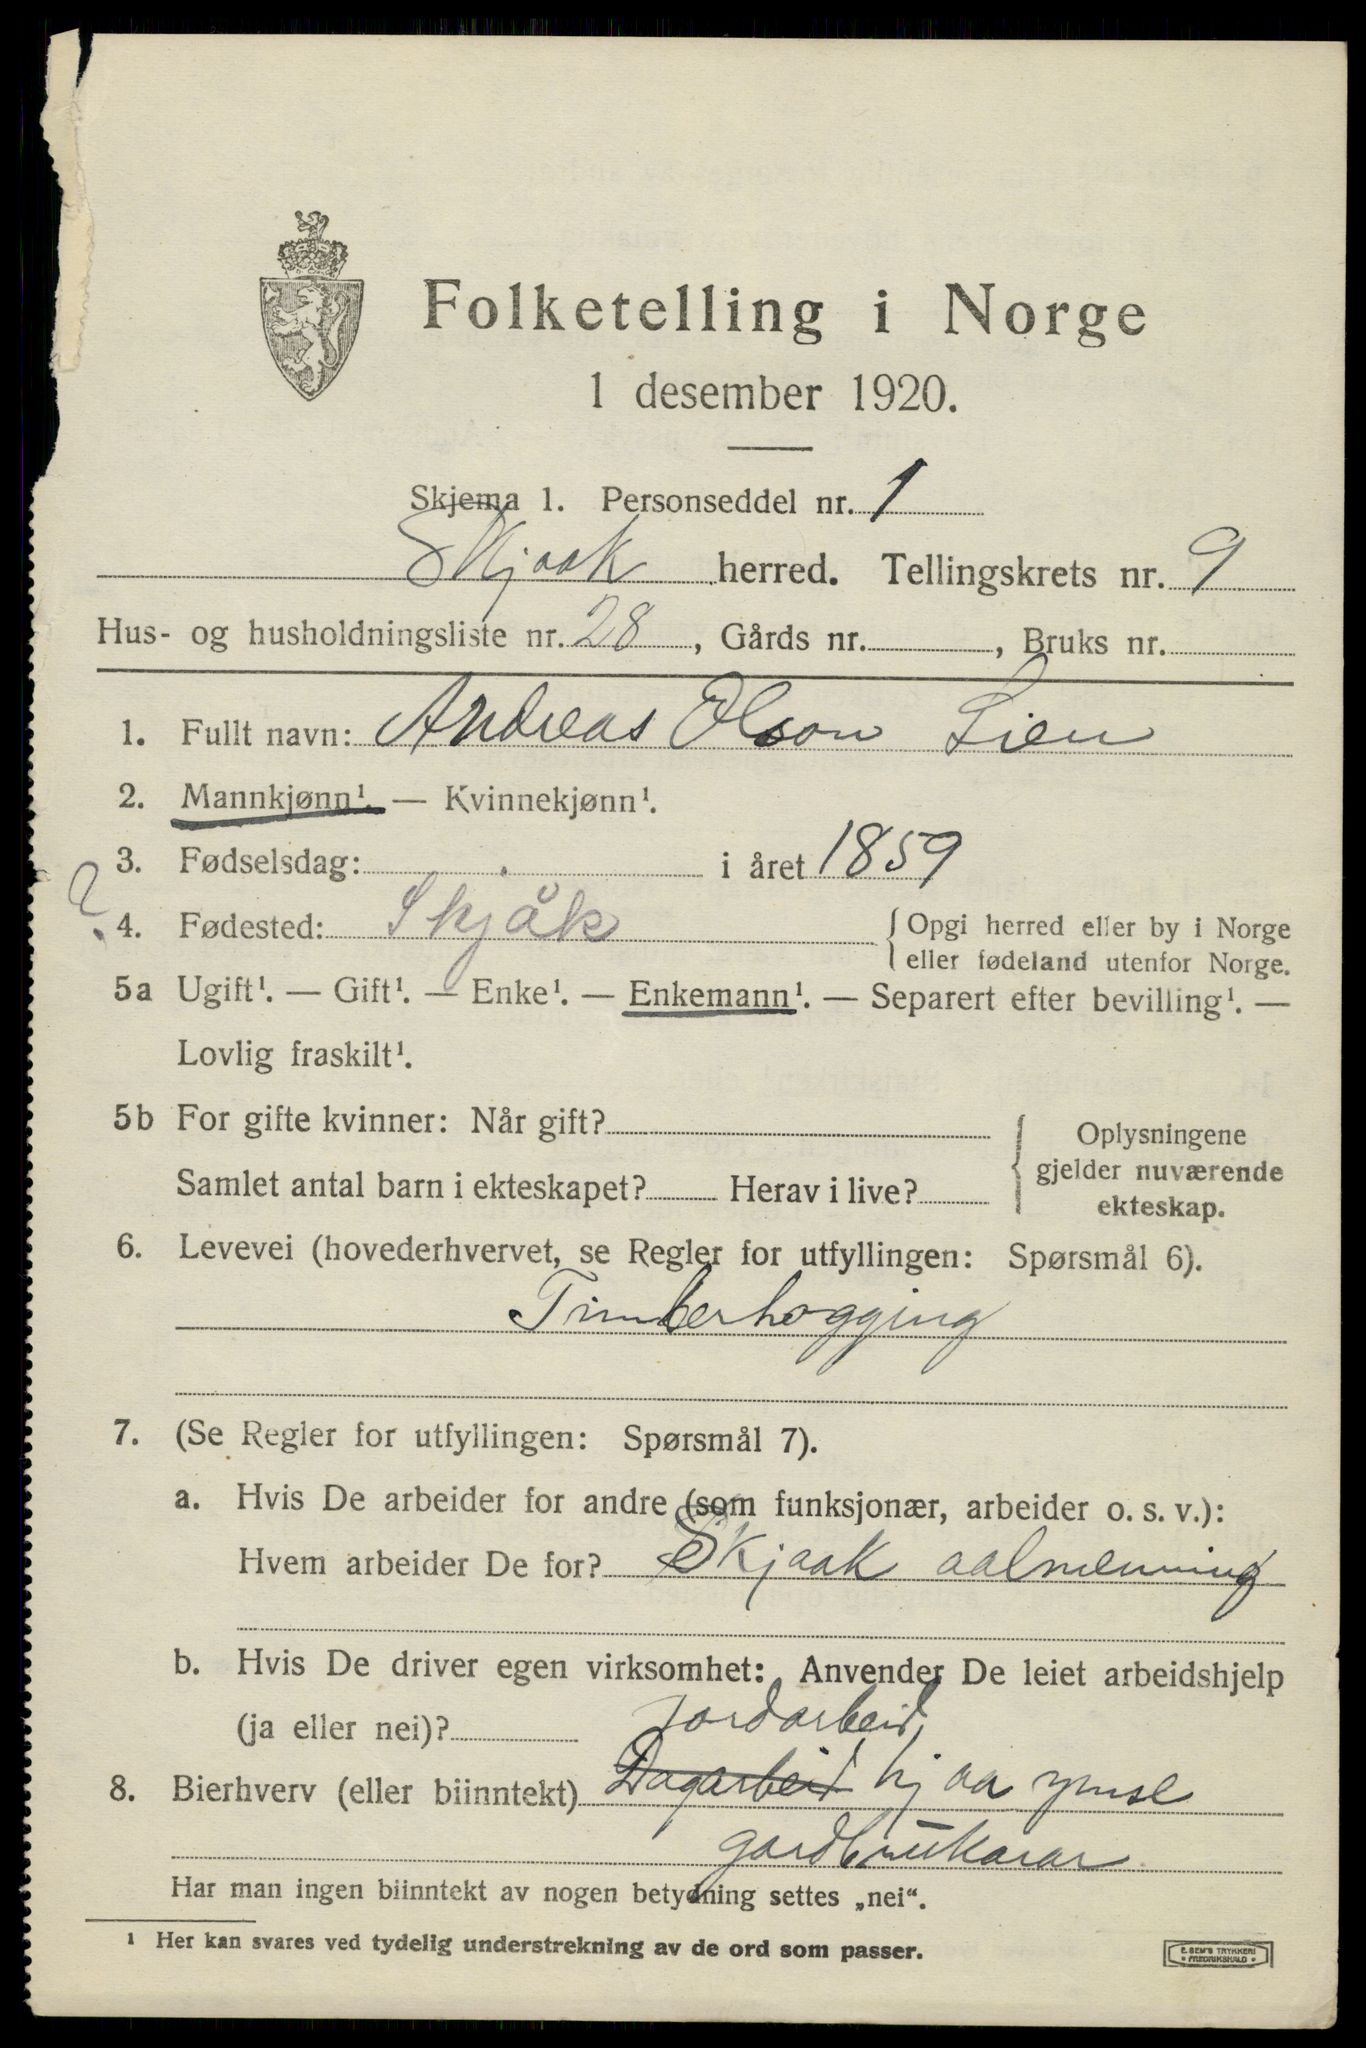 Folketelling i Norge
1 desember 1920.
Skjema 1. Personseddel nr. 1
Skjaak herred. Tellingskrets nr. 9
Hus- og husholdningsliste nr. 28, Gårds nr. , Bruks nr.
1. Fullt navn: Andreas Olson Lien
2. Mannkjønn¹. — Kvinnekjønn¹.
3. Fødselsdag: i året 1859
? 4. Fødested: Skjåk { Opgi herred eller by i Norge
eller fødeland utenfor Norge.
5a Ugift¹. — Gift¹. — Enke¹. — Enkemann¹. — Separert efter bevilling¹. —
Lovlig fraskilt¹.
5b For gifte kvinner: Når gift? { Oplysningene
gjelder nuværende
Samlet antal barn i ekteskapet? Herav i live?
ekteskap.
6. Levevei (hovederhvervet, se Regler for utfyllingen: Spørsmål 6).
Timberhogging
7. (Se Regler for utfyllingen: Spørsmål 7).
a. Hvis De arbeider for andre (som funksjonær, arbeider o. s. v.):
Hvem arbeider De for? Skjaak aalmenning
b. Hvis De driver egen virksomhet: Anvender De leiet arbeidshjelp
(ja eller nei)?
jordarbeid
8. Bierhverv (eller biinntekt) Dagarbeid hjaa ymse
gardbrukarar
Har man ingen biinntekt av nogen betydning settes „nei“.
¹ Her kan svares ved tydelig understrekning av de ord som passer.
E. SEM'S TRYKKERI
FREDRIKSHALD